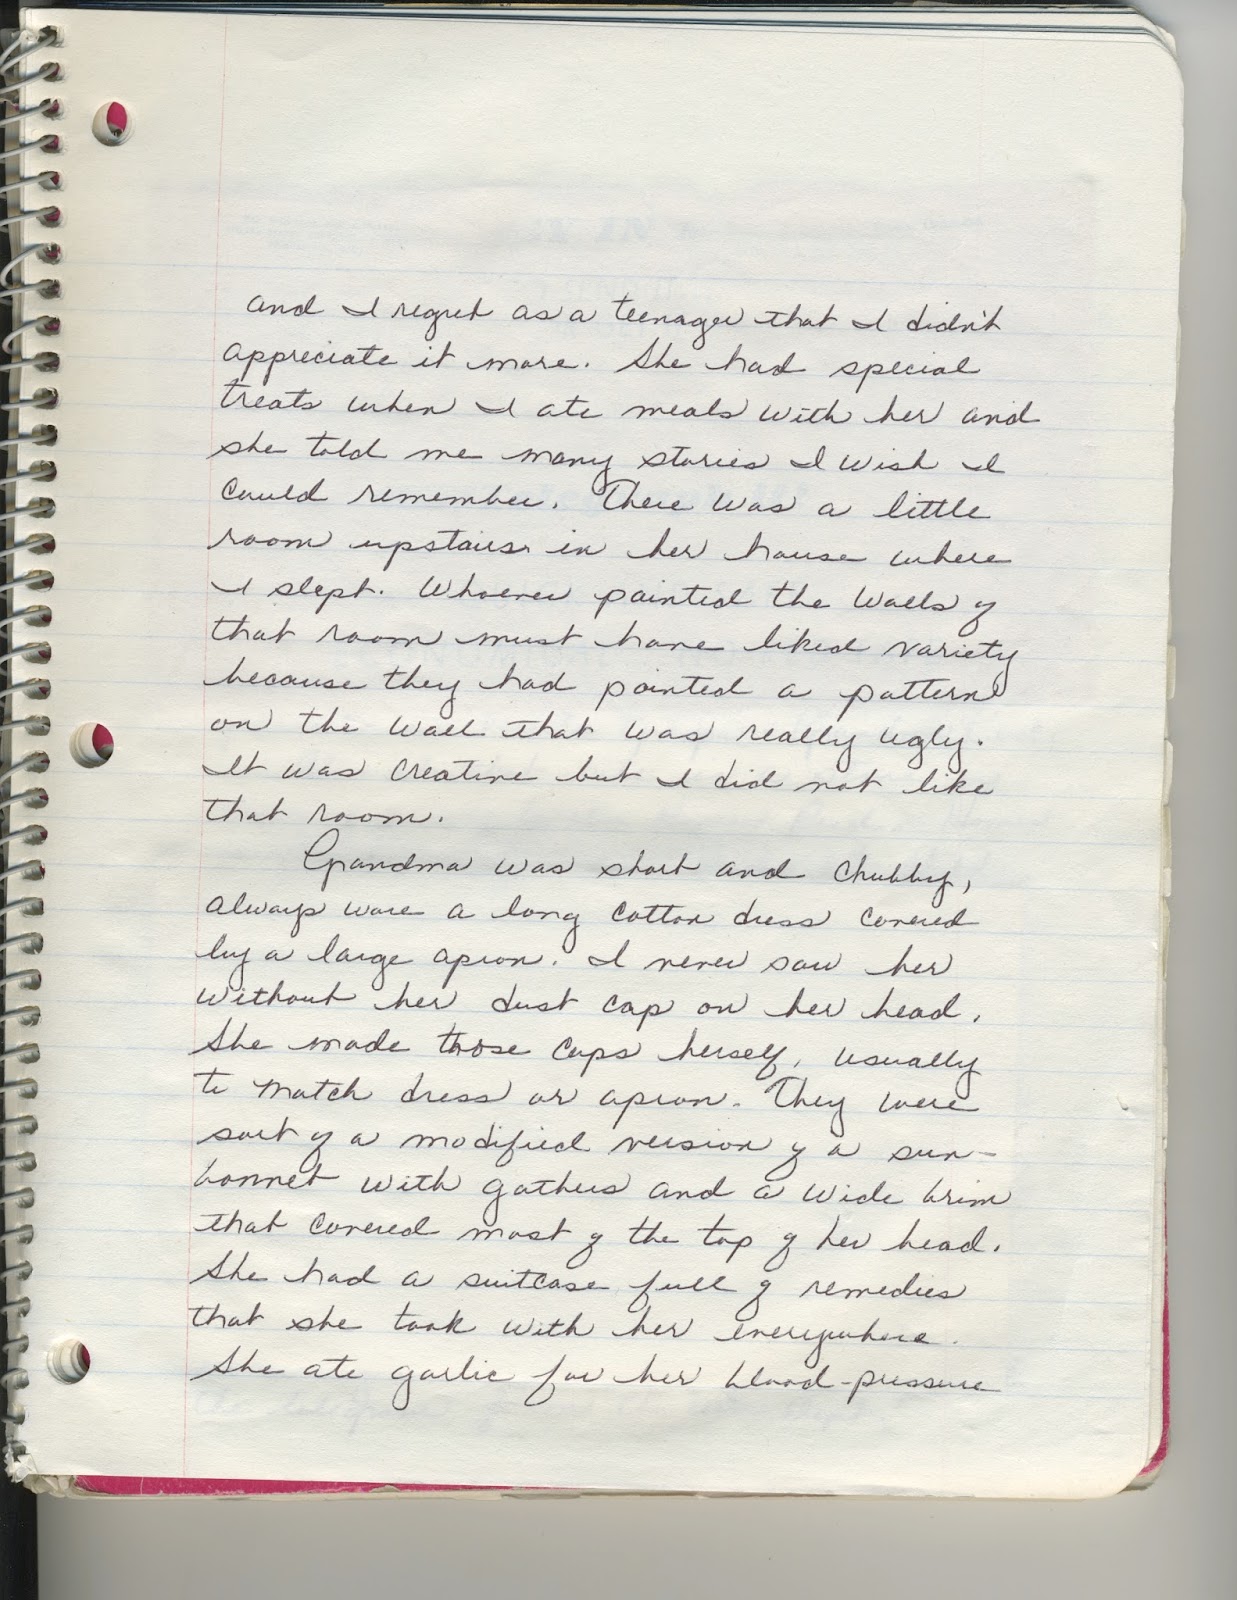 and I regret as a teenager that I didn't
appreciate it more. She had special
treats when I ate meals with her and
she told me many stories I wish I
could remember. There was a little
room upstairs in her house where
I slept. Whoever painted the walls of
that room must have liked variety
because they had painted a pattern
on the wall that was really ugly.
It was creative but I did not like
that room.
Grandma was short and chubby,
always wore a long cotton dress covered
by a large apron. I never saw her
without her dust cap on her head.
She made those caps herself, usually
to match dress or apron. They were
sort of a modified version of a sun-
bonnet with gathers and a wide brim
that covered most of the top of her head.
She had a suitcase full of remedies
that she took with her everywhere.
She ate garlic for her blood-pressure